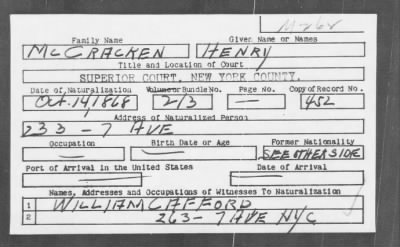 M-262
Family Name Given Name or Names
McCRACKEN HENRY
Title and Location of Court
SUPERIOR COURT, NEW YORK COUNTY.
Date of Naturalization Volume or Bundle No. Page No. Copy of Record No.
Oct. 14, 1868 213 — 452
Address of Naturalized Person
233 - 7 AVE
Occupation Birth Date or Age Former Nationality
— — SEE OTHER SIDE
Port of Arrival in the United States Date of Arrival
— —
Names, Addresses and Occupations of Witnesses To Naturalization
1 WILLIAM CAFFORD
2 263 - 7 AVE NYC